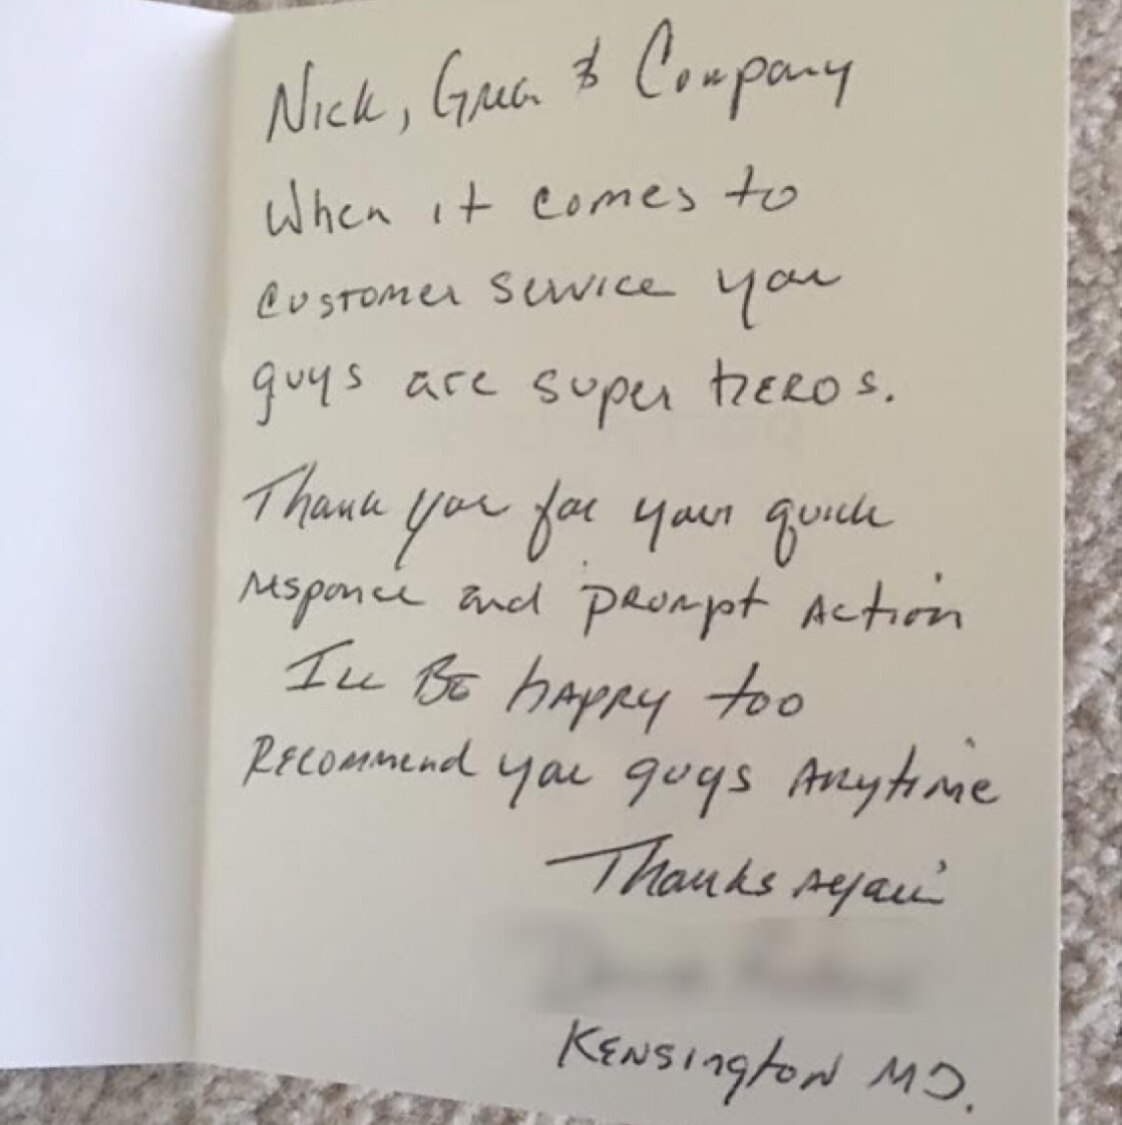 Nick, Greg & Company
When it comes to
customer service you
guys are super heros.
Thank you for your quick
responce and prompt action
Ill Be happy too
Recommend you guys anytime
Thanks again
Kensington MD.